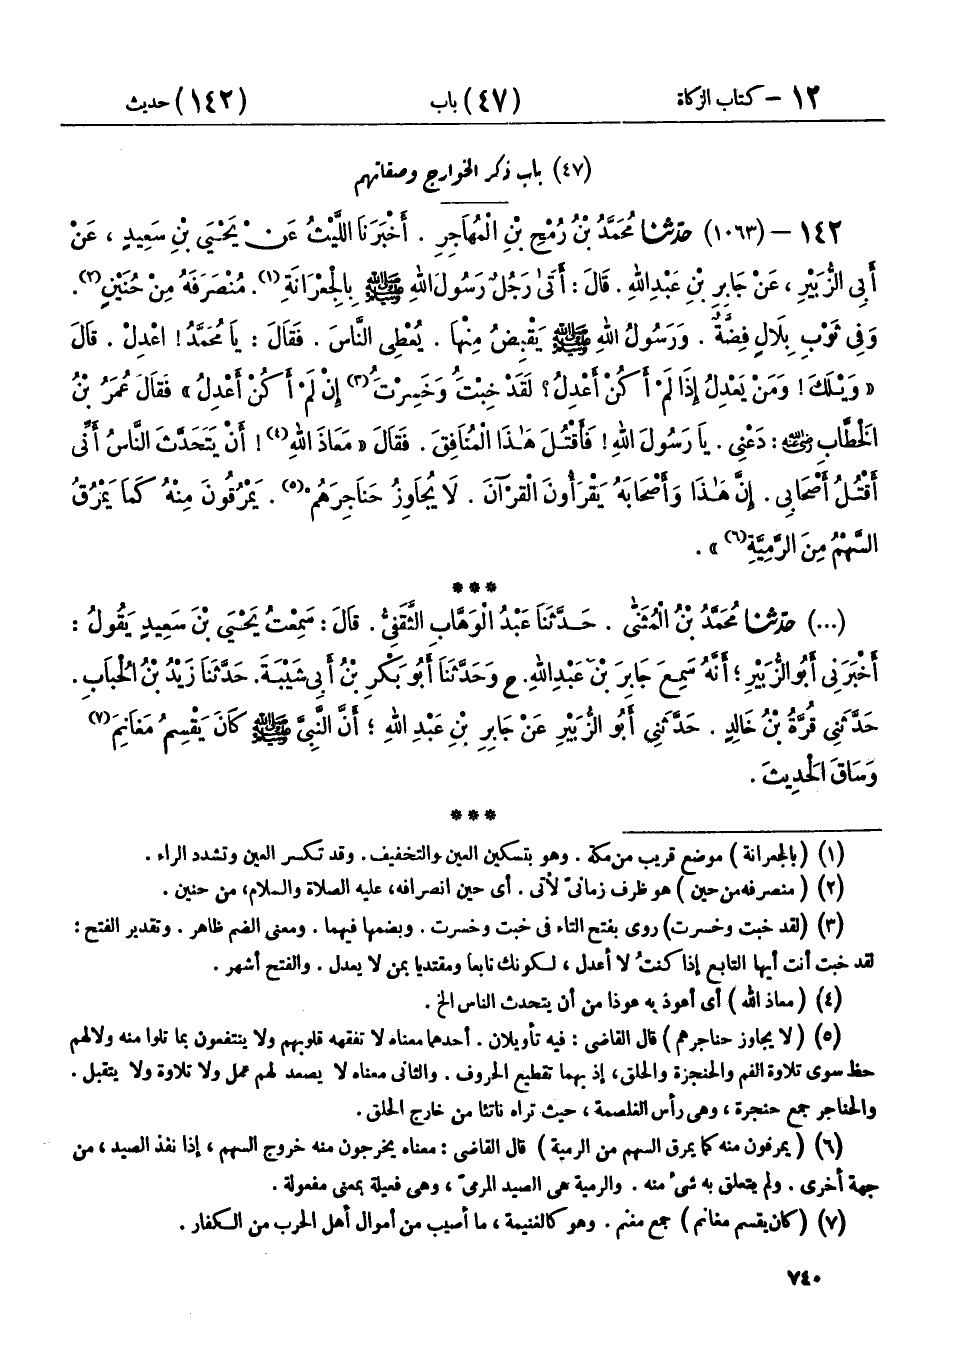 ١٢ – كتاب الزكاة (٤٧) باب (١٤٢) حديث
(٤٧) باب ذكر الخوارج وصفاتهم
١٤٢ – (١٠٦٣) حَدَّثَنَا مُحَمَّدُ بْنُ رُمْحِ بْنِ الْمُهَاجِرِ . أَخْبَرَنَا اللَّيْثُ عَنْ يَحْيَى بْنِ سَعِيدٍ ، عَنْ
أَبِي الزُّبَيْرِ ، عَنْ جَابِرِ بْنِ عَبْدِ اللهِ . قَالَ : أَتَى رَجُلٌ رَسُولَ اللهِ ﷺ بِالْجِعْرَانَةِ(١). مُنْصَرَفَهُ مِنْ حُنَيْنٍ(٢).
وَفِي ثَوْبِ بِلَالٍ فِضَّةٌ . وَرَسُولُ اللهِ ﷺ يَقْبِضُ مِنْهَا . يُعْطِي النَّاسَ . فَقَالَ : يَا مُحَمَّدُ ! اعْدِلْ . قَالَ
« وَيْلَكَ ! وَمَنْ يَعْدِلُ إِذَا لَمْ أَكُنْ أَعْدِلُ ؟ لَقَدْ خِبْتُ وَخَسِرْتُ(٣) إِنْ لَمْ أَكُنْ أَعْدِلُ » فَقَالَ عُمَرُ بْنُ
الْخَطَّابِ رضي الله عنه : دَعْنِي . يَا رَسُولَ اللهِ ! فَأَقْتُلَ هٰذَا الْمُنَافِقَ . فَقَالَ « مَعَاذَ اللهِ(٤) ! أَنْ يَتَحَدَّثَ النَّاسُ أَنِّي
أَقْتُلُ أَصْحَابِي . إِنَّ هٰذَا وَأَصْحَابَهُ يَقْرَأُونَ الْقُرْآنَ . لَا يُجَاوِزُ حَنَاجِرَهُمْ(٥) . يَمْرُقُونَ مِنْهُ كَمَا يَمْرُقُ
السَّهْمُ مِنَ الرَّمِيَّةِ(٦) » .
***
(...) حَدَّثَنَا مُحَمَّدُ بْنُ الْمُثَنَّى . حَدَّثَنَا عَبْدُ الْوَهَّابِ الثَّقَفِيُّ . قَالَ : سَمِعْتُ يَحْيَى بْنَ سَعِيدٍ يَقُولُ :
أَخْبَرَنِي أَبُو الزُّبَيْرِ ؛ أَنَّهُ سَمِعَ جَابِرَ بْنَ عَبْدِ اللهِ. ح وَحَدَّثَنَا أَبُو بَكْرِ بْنُ أَبِي شَيْبَةَ. حَدَّثَنَا زَيْدُ بْنُ الْحُبَابِ .
حَدَّثَنِي قُرَّةُ بْنُ خَالِدٍ . حَدَّثَنِي أَبُو الزُّبَيْرِ عَنْ جَابِرِ بْنِ عَبْدِ اللهِ ؛ أَنَّ النَّبِيَّ ﷺ كَانَ يَقْسِمُ مَغَانِمَ(٧)
وَسَاقَ الْحَدِيثَ .
***
(١) (بالجعرانة) موضع قريب من مكة . وهو بتسكين العين والتخفيف. وقد تكسر العين وتشدد الراء .
(٢) ( منصرفه من حنين ) هو ظرف زمانيّ لأتى . أى حين انصرافه، عليه الصلاة والسلام، من حنين .
(٣) (لقد خبت وخسرت) روى بفتح التاء فى خبت وخسرت . وبضمها فيهما . ومعنى الضم ظاهر . وتقدير الفتح :
لقد خبت أنت أيها التابع إذا كنتُ لا أعدل ، لكونك تابعا ومقتديا بمن لا يعدل . والفتح أشهر .
(٤) ( معاذ الله ) أى أعوذ به عوذا من أن يتحدث الناس الخ .
(٥) ( لا يجاوز حناجرهم ) قال القاضى : فيه تأويلان . أحدهما معناه لا تفقهه قلوبهم ولا ينتفعون بما تلوا منه ولا لهم
حظ سوى تلاوة الفم والحنجرة والحلق، إذ بهما تقطيع الحروف . والثانى معناه لا يصعد لهم عمل ولا تلاوة ولا يتقبل .
والحناجر جمع حنجرة ، وهى رأس الغلصمة ، حيث تراه ناتئا من خارج الحلق .
(٦) ( يمرقون منه كما يمرق السهم من الرمية ) قال القاضى : معناه يخرجون منه خروج السهم ، إذا نفذ الصيد ، من
جهة أخرى . ولم يتعلق به شىء منه . والرمية هى الصيد المرمىّ ، وهى فعيلة بمعنى مفعولة .
(٧) ( كان يقسم مغانم ) جمع مغنم . وهو كالغنيمة ، ما أصيب من أموال أهل الحرب من الكفار .
٧٤٠